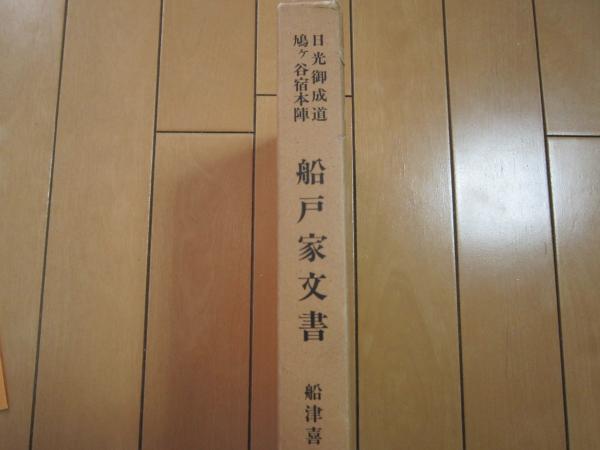 日光御成道
鳩ヶ谷宿本陣
船戸家文書
船津喜